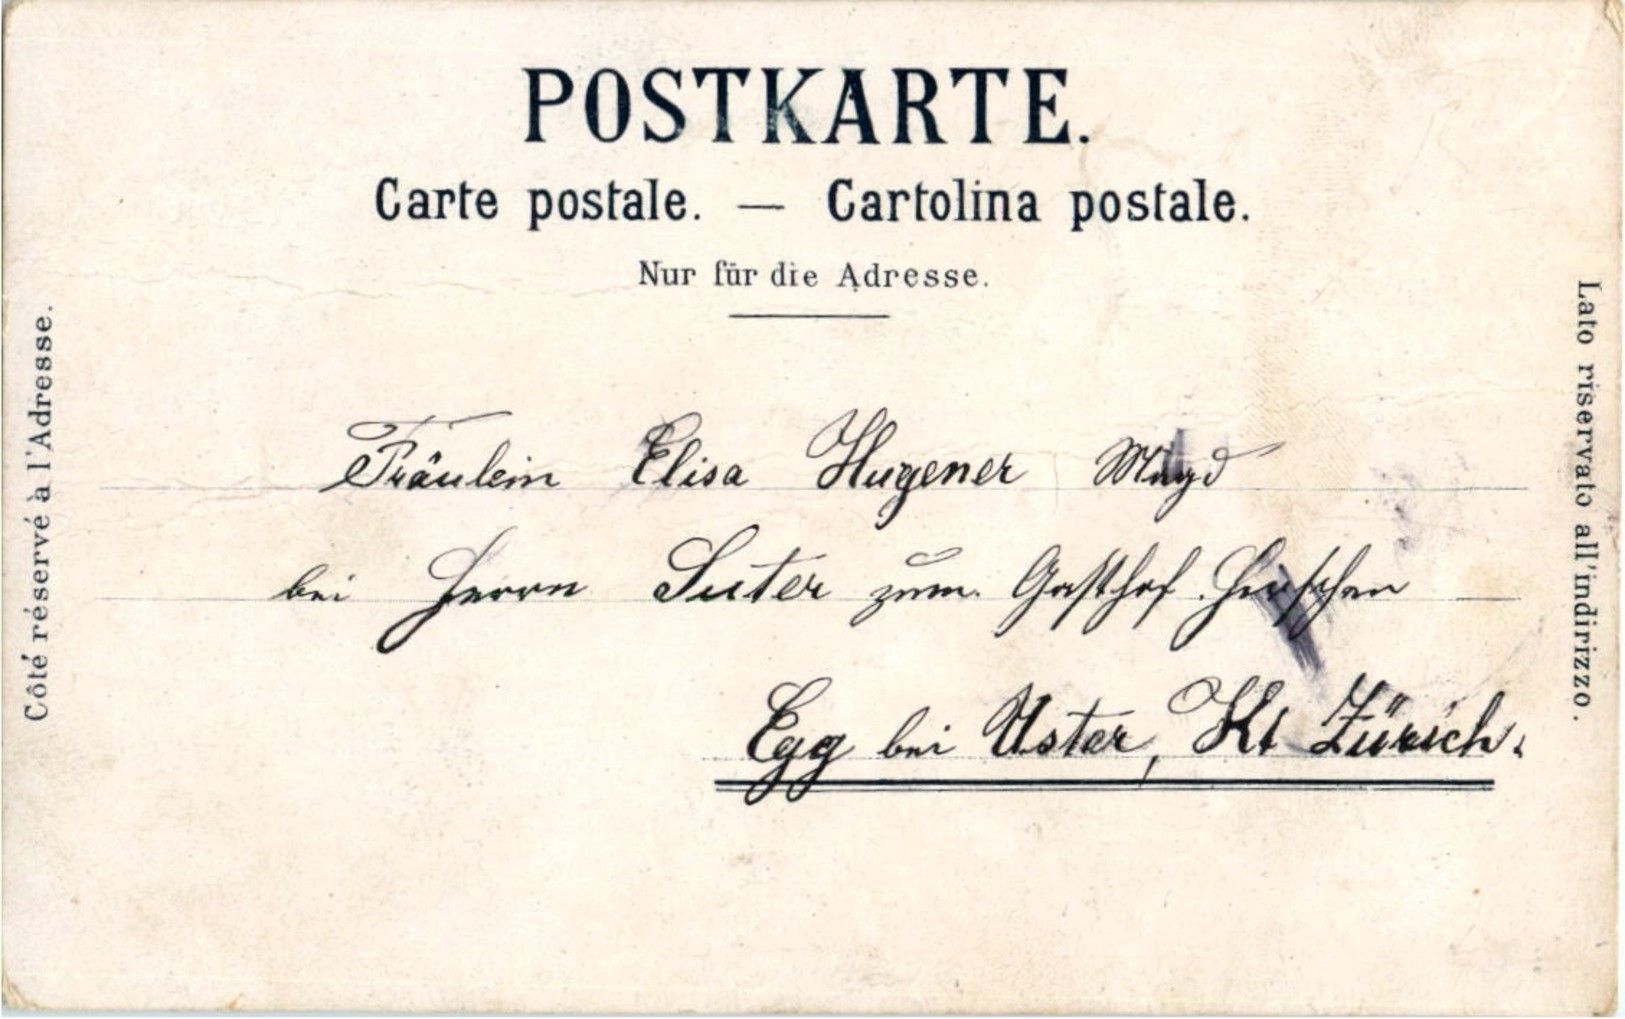 POSTKARTE.
Carte postale. — Cartolina postale.
Nur für die Adresse.
Côté réservé à l'Adresse.
Lato riservato all'indirizzo.
Fräulein Elisa Hugener Magd
bei Herrn Suter zum Gasthof Hirschen
Egg bei Uster, Kt Zürich.